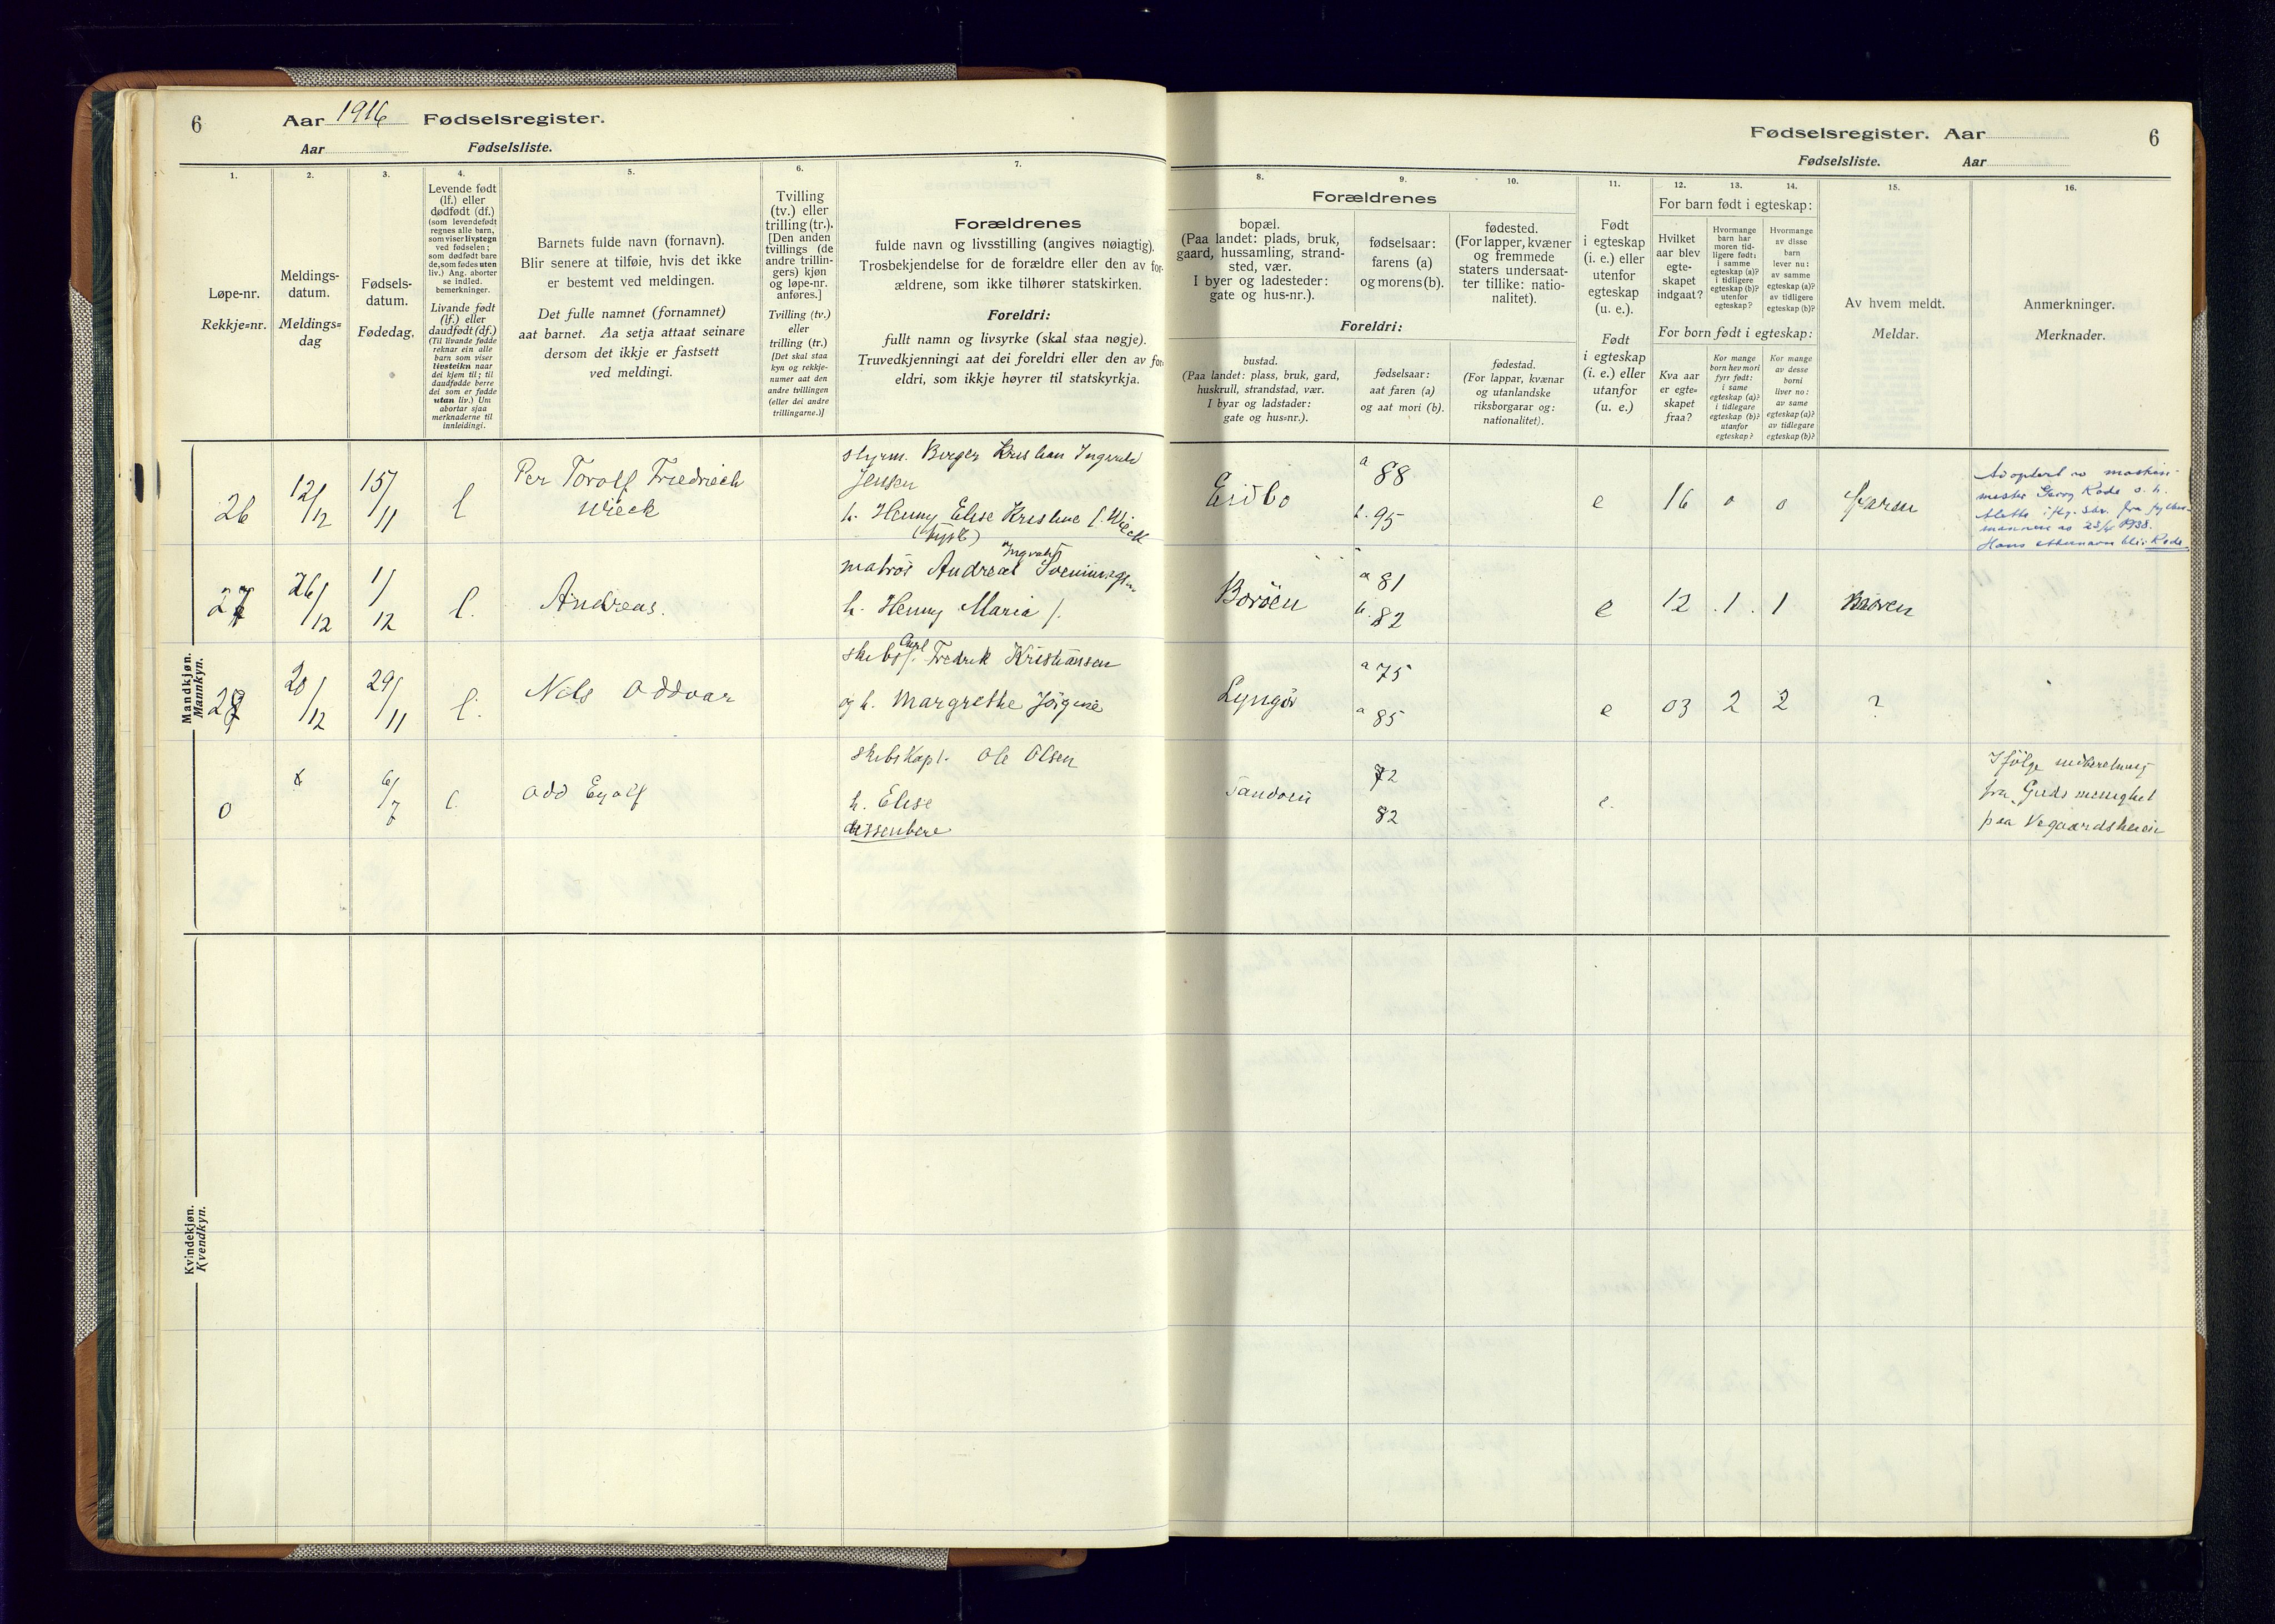 6
Aar 1916 Fødselsregister.
Aar Fødselsliste.
1.
2.
3.
4.
5.
6.
7.
Løpe-nr.
Rekkje=nr.
Meldings-
datum.
Meldings=
dag
Fødsels-
datum.
Fødedag.
Levende født
(lf.) eller
dødfødt (df.)
(som levendefødt
regnes alle barn,
som viser livstegn
ved fødselen;
som dødfødt bare
de, som fødes uten
liv.) Ang. aborter
se indled.
bemerkninger.
Livande født
(lf.) eller
daudfødt (df.)
(Til livande fødde
reknar ein alle
barn som viser
livsteikn naar
dei kjem til; til
daudfødde berre
dei som er fødde
utan liv.) Um
abortar sjaa
merknaderne til
innleidingi.
Barnets fulde navn (fornavn).
Blir senere at tilføie, hvis det ikke
er bestemt ved meldingen.
Det fulle namnet (fornamnet)
aat barnet. Aa setja attaat seinare
dersom det ikkje er fastsett
ved meldingi.
Tvilling
(tv.) eller
trilling (tr.).
[Den anden
tvillings (de
andre trillin-
gers) kjøn
og løpe-nr.
anføres.]
Tvilling (tv.)
eller
trilling (tr.)
[Det skal staa
kyn og rekkje-
numer aat den
andre tvillingen
(eller dei andre
trillingarne.)]
Forældrenes
fulde navn og livsstilling (angives nøiagtig).
Trosbekjendelse for de forældre eller den av for-
ældrene, som ikke tilhører statskirken.
Foreldri:
fullt namn og livsyrke (skal staa nøgje).
Truvedkjenningi aat dei foreldri eller den av for-
eldri, som ikkje høyrer til statskyrkja.
Mandkjøn.
Mannkyn.
26
12/12
15/11
l
Per Torolf Friedrich
Wieck
styrm. Berger Kristian Ingvald
Jensen
h. Henny Elise Kristine f. Wieck
27
26/12
1/12
l.
Andreas.
matros Andreas Ingvald
h. Henny Maria f.
28
20/12
29/11
l.
Nils Oddvar
skibsf. Carl Fredrik Kristiansen
og h. Margrethe Jörgine
0
6/7
l.
Odd Eyolf
skibskapt. Ole Olsen
h. Elise
dissentere
Kvindekjøn.
Kvendkyn.
Fødselsregister. Aar
6
Fødselsliste. Aar
8.
9.
10.
11.
12.
13.
14.
15.
16.
Forældrenes
bopæl.
(Paa landet: plads, bruk,
gaard, hussamling, strand-
sted, vær.
I byer og ladesteder:
gate og hus-nr.).
fødselsaar:
farens (a)
og morens (b).
fødested.
(For lapper, kvæner
og fremmede
staters undersaat-
ter tillike: natio-
nalitet).
Foreldri:
bustad.
(Paa landet: plass, bruk, gard,
huskrull, strandstad, vær.
I byar og ladstader:
gate og hus=nr.).
fødselsaar:
aat faren (a)
og aat mori (b).
fødestad.
(For lappar, kvænar
og utanlandske
riksborgarar og:
nationalitet).
Født
i egteskap
(i. e.) eller
utenfor
egteskap
(u. e.).
Født
i egteskap
(i. e.) eller
utanfor
(u. e.)
For barn født i egteskap:
Hvilket
aar blev
egte-
skapet
indgaat?
Hvormange
barn har
moren tid-
ligere født:
i samme
egteskap (a)?
i tidligere
egteskap (b)?
utenfor
egteskap?
Hvormange
av disse
barn
lever nu:
av samme
egteskap (a)?
av tidligere
egteskap (b)?
For born født i egteskap:
Kva aar
er egte=
skapet
fraa?
Kor mange
born hev mori
fyrr født:
i same
egteskap (a)?
i tidlegare
egteskap (b)?
utanfor
egteskap?
Kor mange
av desse
borni
liver no:
av same
egteskap (a)?
av tidlegare
egteskap (b)?
Av hvem meldt.
Meldar.
Anmerkninger.
Merknader.
Eidbo
a 88
b. 95
e
16
0
0
faren
Adoptert av maskin-
mester Georg Rode o. h.
fra fylkes-
mannen av
Hans etternavn blir Rode
Borøen
a 81
b. 82
e
12
1.
1
Lyngør
a 75
a 85
e
03
2
2
?
Sandøen
72
82
e.
Ifölge indberetning
fra Guds menighet
paa Vegaardsheien